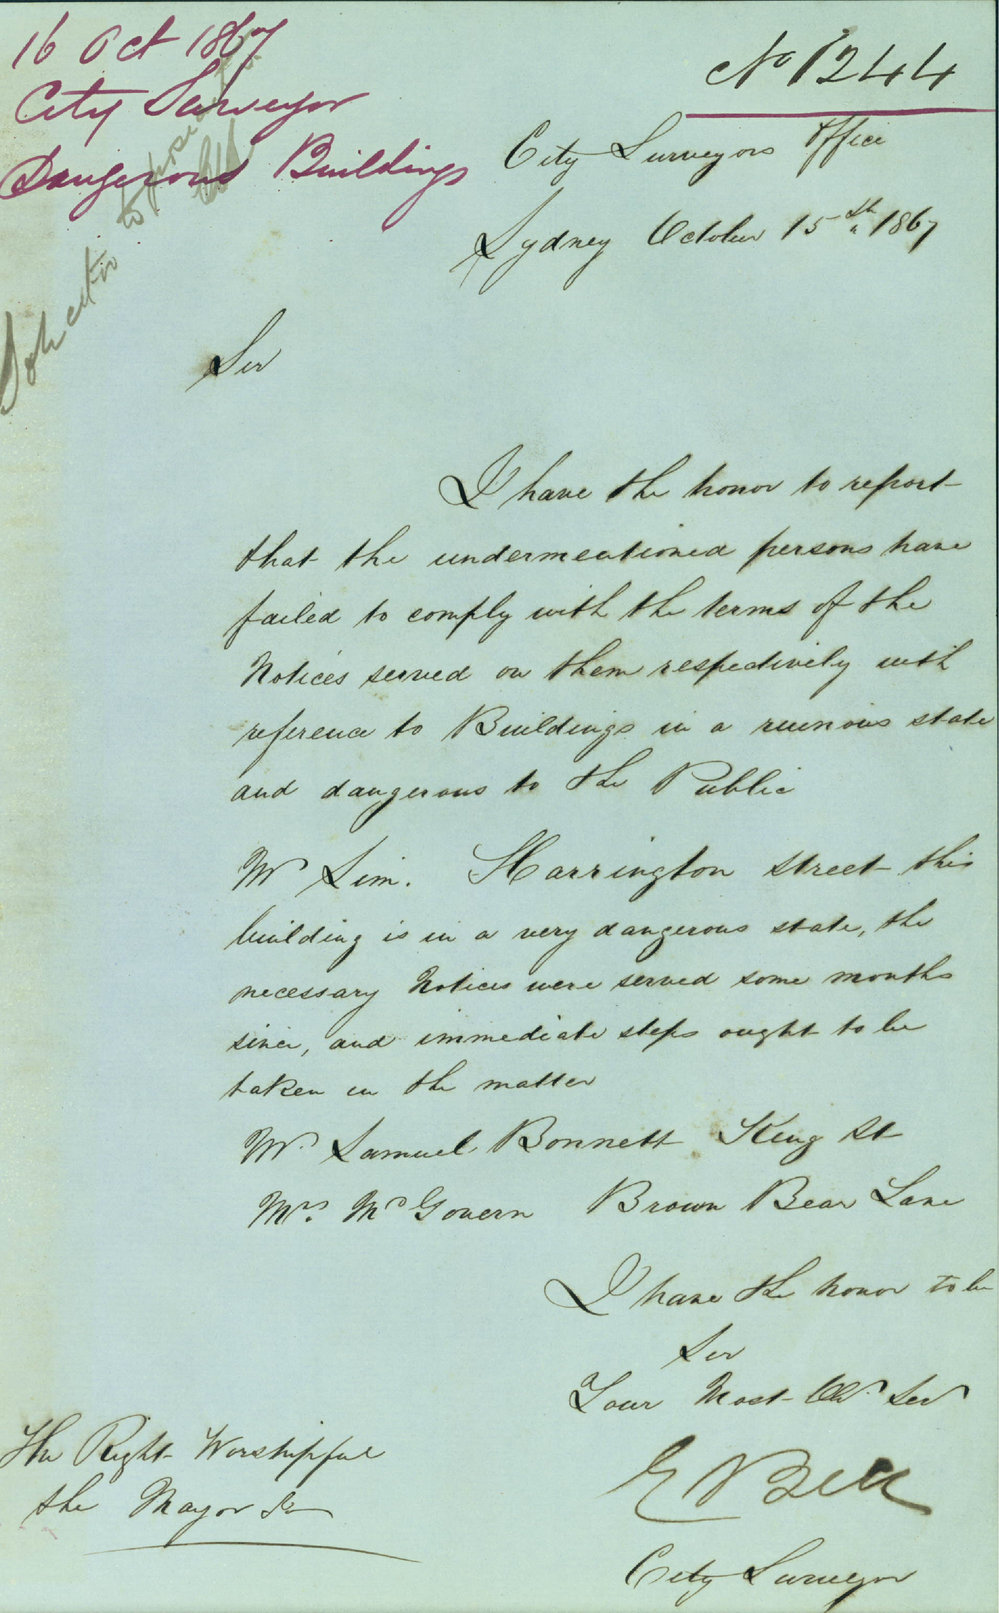 16 Oct 1867
City Surveyor
Dangerous Buildings
No 1244
City Surveyors Office
Sydney October 15th 1867
Solicitor to
Sir
I have the honor to report
that the undermentioned persons have
failed to comply with the terms of the
Notices served on them respectively with
reference to Buildings in a ruinous state
and dangerous to the Public
Mr Sim. Harrington street this
building is in a very dangerous state, the
necessary Notices were served some months
since, and immediate steps ought to be
taken in the matter
Mr. Samuel Bonnett King St
Mrs. McGovern Brown Bear Lane
I have the honor to be
Sir
Your Most Obt Ser
E Bell
City Surveyor
The Right Worshipful
the Mayor &c